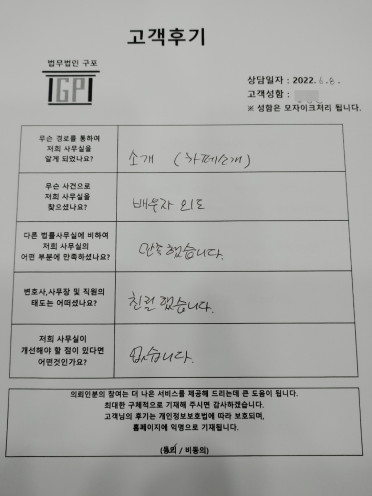 고객후기
법무법인 구포
GP
상담일자 : 2022. 6. 8.
고객성함 :
※ 성함은 모자이크처리 됩니다.
무슨 경로를 통하여
저희 사무실을
알게 되었나요?
소개 (카페소개)
무슨 사건으로
저희 사무실을
찾으셨나요?
배우자 외도
다른 법률사무실에 비하여
저희 사무실의
어떤 부분에 만족하셨나요?
만족 했습니다.
변호사,사무장 및 직원의
태도는 어떠셨나요?
친절 했습니다.
저희 사무실이
개선해야 할 점이 있다면
어떤것인가요?
없습니다.
의뢰인분의 참여는 더 나은 서비스를 제공해 드리는데 큰 도움이 됩니다.
최대한 구체적으로 기재해 주시면 감사하겠습니다.
고객님의 후기는 개인정보보호법에 따라 보호되며,
홈페이지에 익명으로 기재됩니다.
(동의 / 비동의)